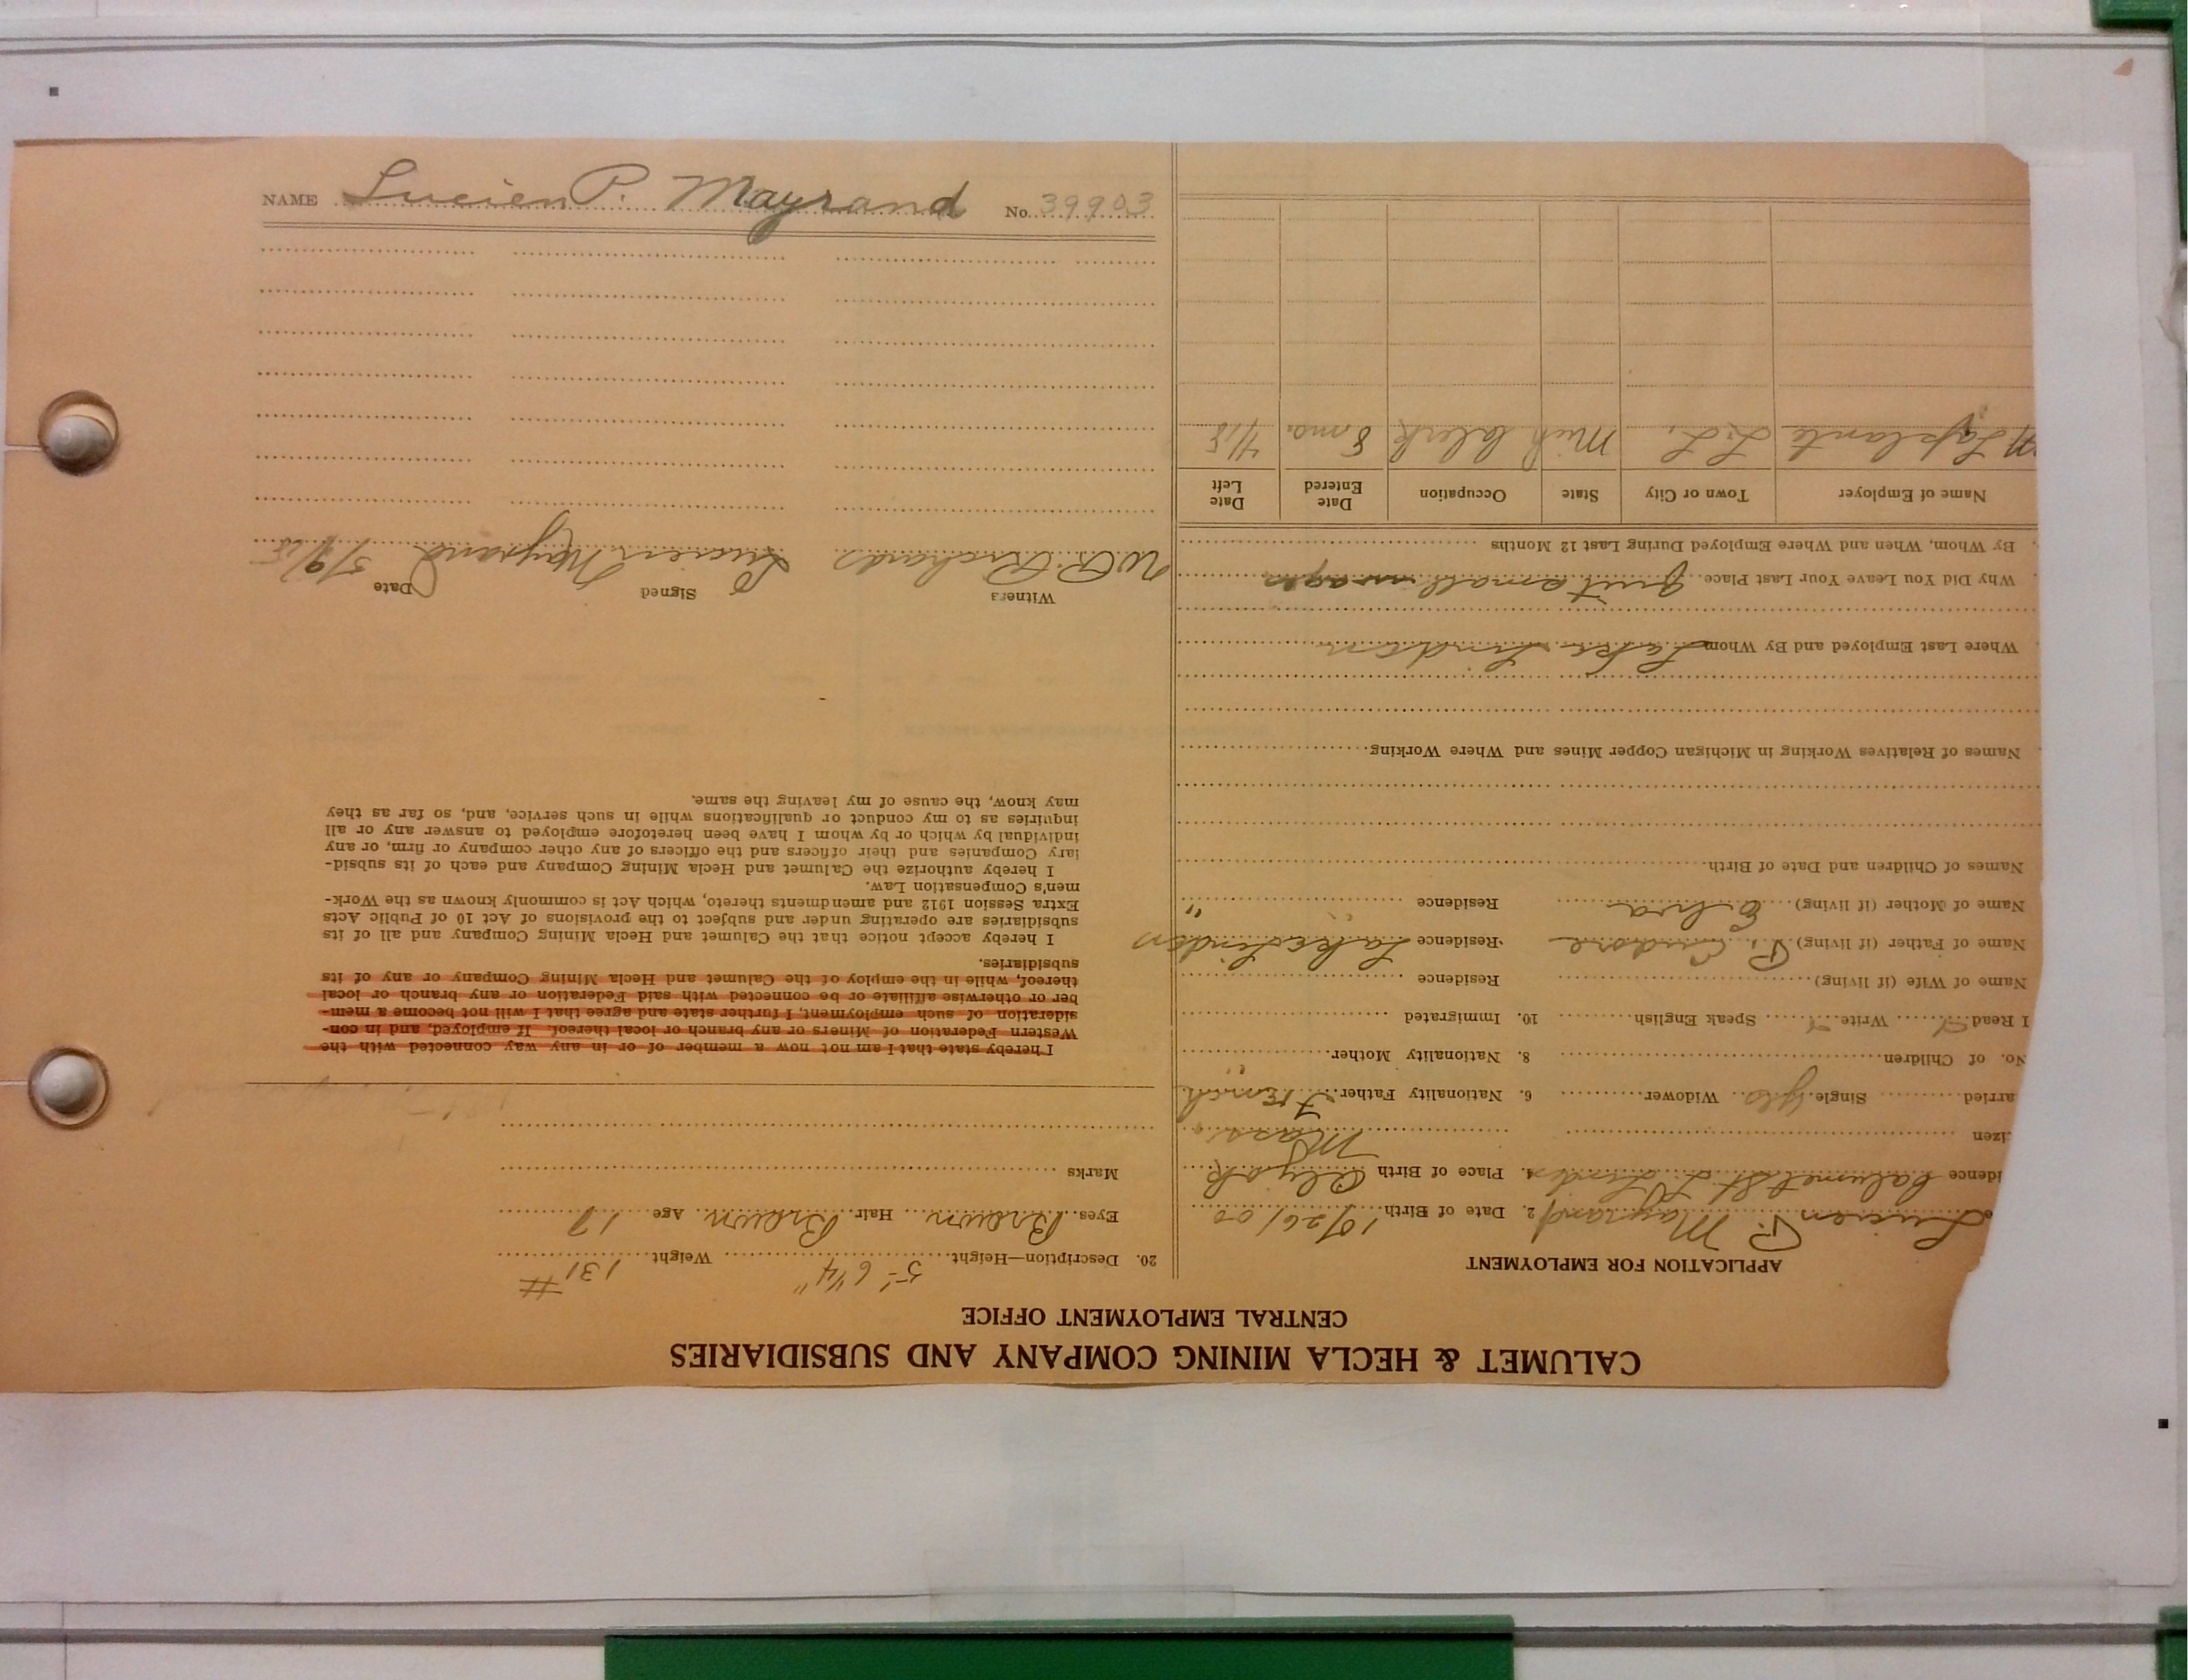 NAME Lucien P. Mayrand No. 39903
CALUMET & HECLA MINING COMPANY AND SUBSIDIARIES
CENTRAL EMPLOYMENT OFFICE
APPLICATION FOR EMPLOYMENT
Lucien P. Mayrand 2. Date of Birth 10/26/00
idence Calumet St L. Linden 4. Place of Birth
izen Mass.
arried Single yes Widower 6. Nationality Father French
No. of Children 8. Nationality Mother "
I Read Write Speak English 10. Immigrated
Name of Wife (if living) Residence
Name of Father (if living) Residence Lake Linden
Name of Mother (if living) Residence "
Names of Children and Date of Birth
Names of Relatives Working in Michigan Copper Mines and Where Working
Where Last Employed and By Whom Lake Linden
Why Did You Leave Your Last Place quit small wages
By Whom, When and Where Employed During Last 12 Months
Name of Employer Town or City State Occupation Date Entered Date Left
Laplante L. L. Mich Clerk 8 mo. 4/18
20. Description—Height 5-' 6 1/4" Weight 131 #
Eyes Brown Hair Brown Age 17
Marks
I hereby state that I am not now a member of or in any way connected with the
Western Federation of Miners or any branch or local thereof. If employed, and in con-
sideration of such employment, I further state and agree that I will not become a mem-
ber or otherwise affiliate or be connected with said Federation or any branch or local
thereof, while in the employ of the Calumet and Hecla Mining Company or any of its
subsidiaries.
I hereby accept notice that the Calumet and Hecla Mining Company and all of its
subsidiaries are operating under and subject to the provisions of Act 10 of Public Acts
Extra Session 1912 and amendments thereto, which Act is commonly known as the Work-
men's Compensation Law.
I hereby authorize the Calumet and Hecla Mining Company and each of its subsid-
iary Companies and their officers and the officers of any other company or firm, or any
individual by which or by whom I have been heretofore employed to answer any or all
inquiries as to my conduct or qualifications while in such service, and, so far as they
may know, the cause of my leaving the same.
Witness Signed Date
W. R. Richards Lucien P Mayrand 5/9/18